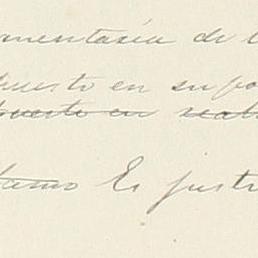 mentaría de l
puesto en su po
puesto en reali
Es justi